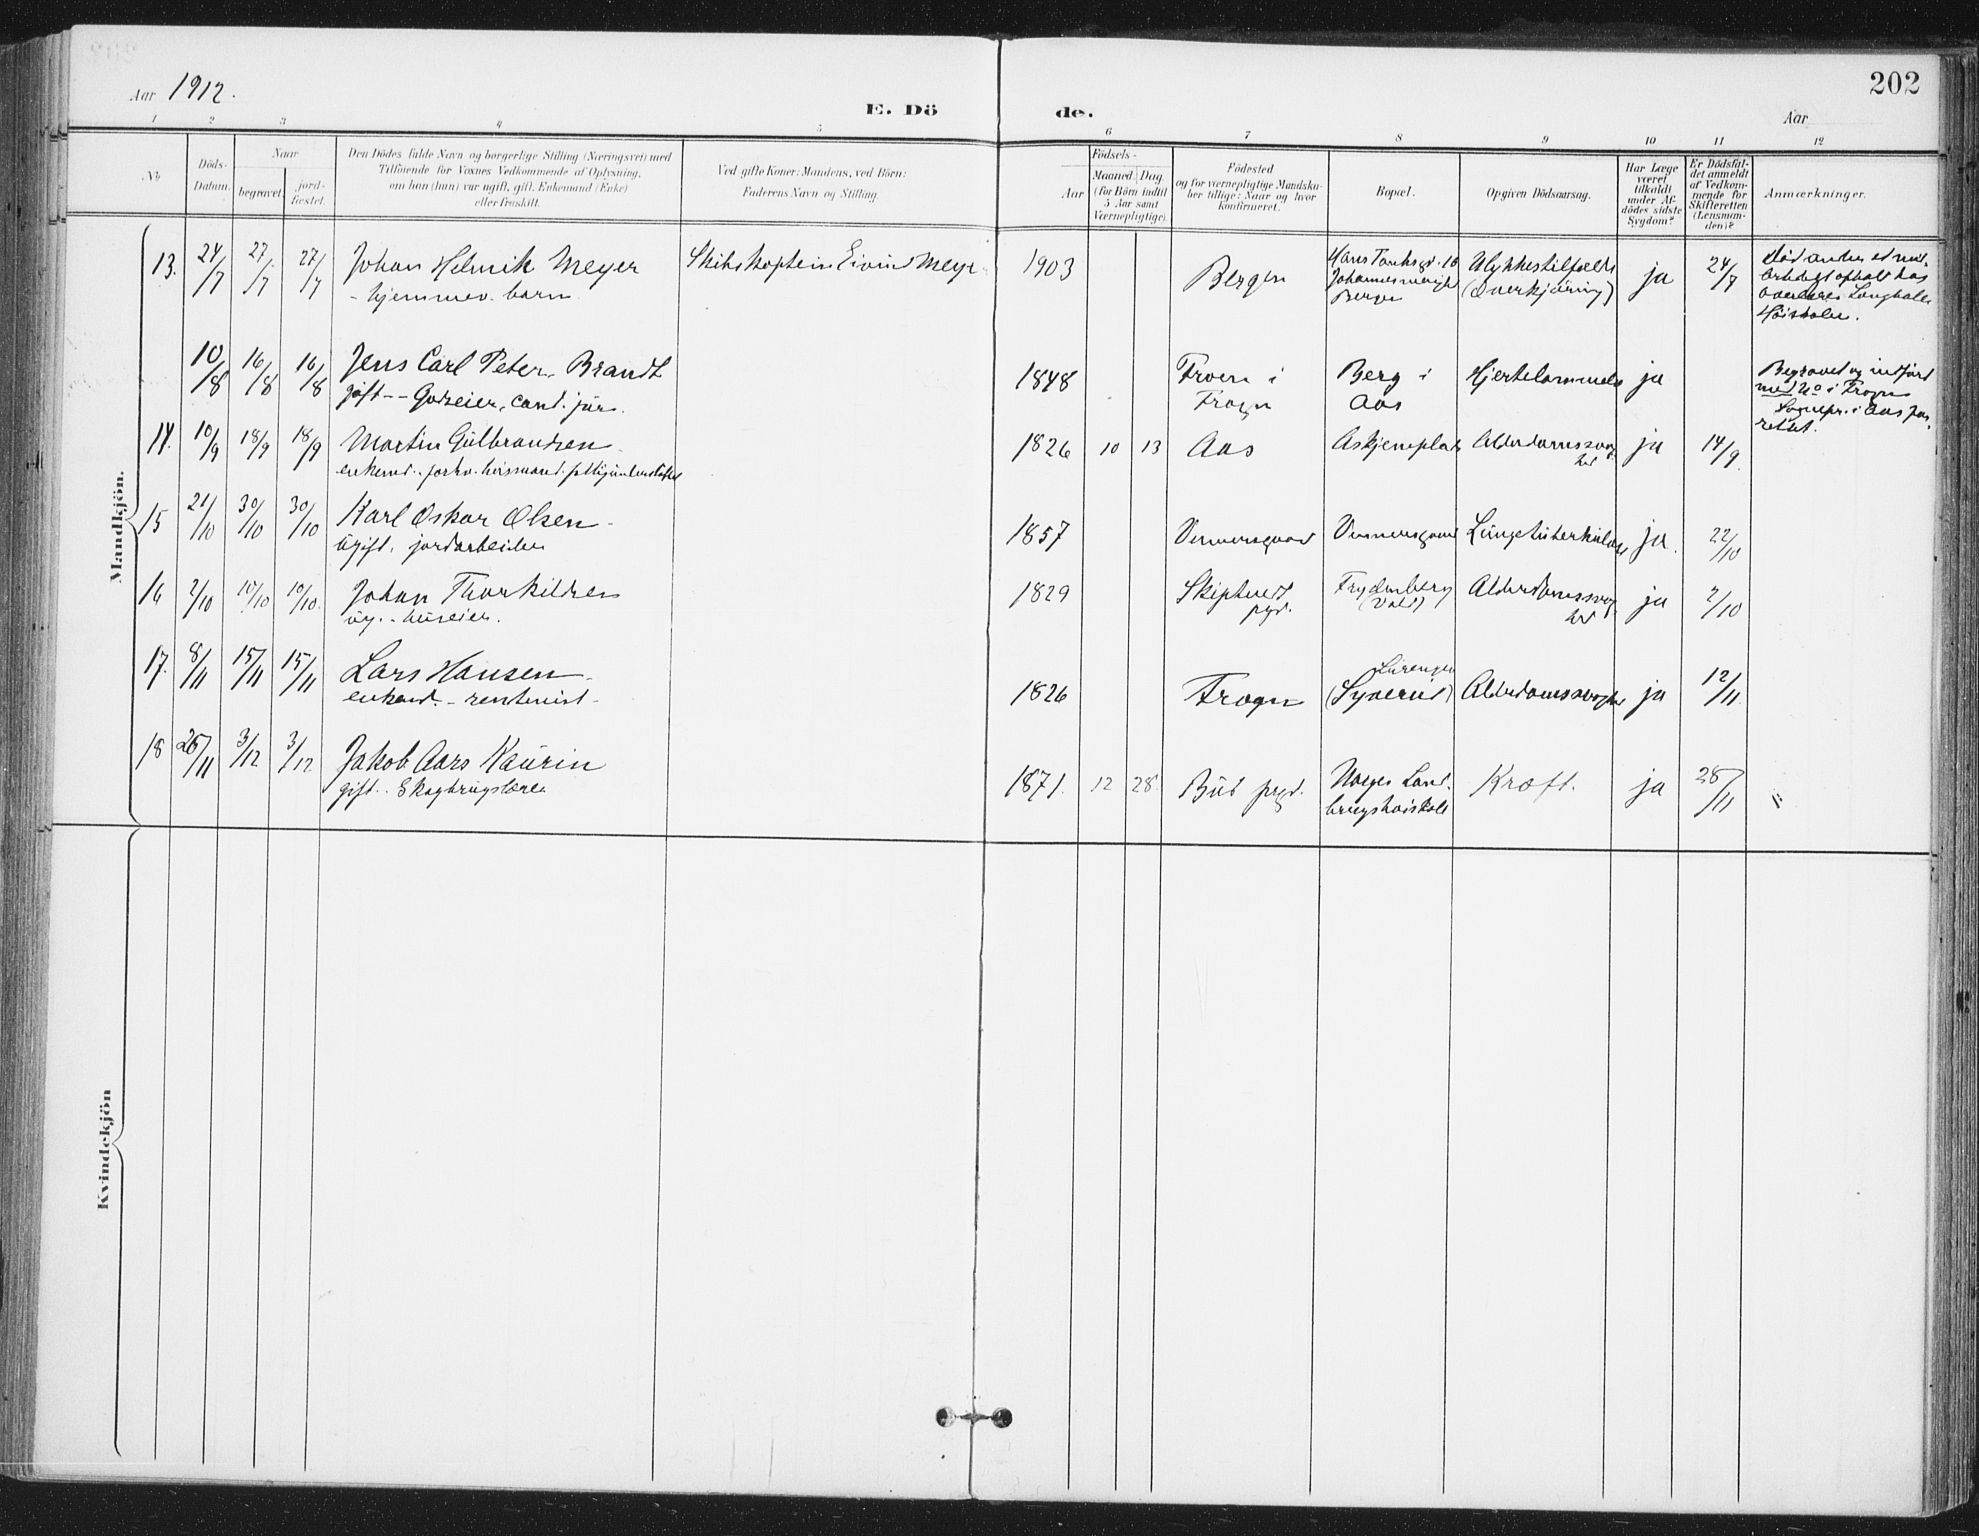 202
Aar 1912.
E. Dö de.
Aar
1 2 3 4 5 6 7 8 9 10 11 12
No.
Döds-
Datum.
Naar
begravet.
jord-
fæstet.
Den Dödes fulde Navn og borgerlige Stilling (Næringsvei) med
Tilföiende for Voxnes Vedkommende af Oplysning,
om han (hun) var ugift, gift, Enkemand (Enke)
eller fraskilt.
Ved gifte Koner: Mandens, ved Börn:
Faderens Navn og Stilling.
Födsels-
Aar
Maaned. Dag.
(for Börn indtil
5 Aar samt
Værnepligtige).
Födested
og for værnepligtige Mandska-
ber tillige: Naar og hvor
konfirmeret.
Bopæl.
Opgiven Dödsaarsag.
Har Læge
været
tilkaldt
under Af-
dödes sidste
Sygdom?
Er Dödsfal-
det anmeldt
af Vedkom-
mende for
Skifteretten
(Lensman-
den)?
Anmærkninger.
Mandkjön.
13. 24/7 27/7 27/7 Johan Helmik Meyer
- hjemmev. barn
Skibskaptein Eivind Meyer
1903 Bergen
Johannes
Bergen
Ulykkestilfælde
(Overkjöring)
ja 24/7
död under et mid-
Höiskole.
10/8 16/8 16/8 Jens Carl Peter Brandt
gift -- Godseier, cand. jur.
1848 Froen i
Frogn
Berg i
Aas
Hjertelammelse ja
Begravet og indført
med No i Frogn
14. 10/9 18/9 18/9 Martin Gulbrandsen
enkemd.
1826 10 13 Aas Askjemplads Alderdomssvag
hed
ja 14/9
15 21/10 30/10 30/10 Karl Oskar Olsen
ugift, jordarbeider
1857 Lungetuberkulose ja. 22/10
16 2/10 10/10 10/10. Johan Thorkildsen
ug. - huseier.
1829 Skiptvedt
pgd.
Frydenberg
Alderdomssvag
hed
ja 2/10
17. 8/11 15/11 15/11 Lars Hansen
enkemd. - rentenist -
1826 Frogn
(Syverud)
Alderdomssvaghed ja 12/11
18 26/11 3/12 3/12 Jakob Aars Kaurin
gift.. Skogbrugslærer
1871. 12 28. Bud pgd. Norges Land-
brugshöiskole
Kræft. ja 28/11 "
Kvindekjön